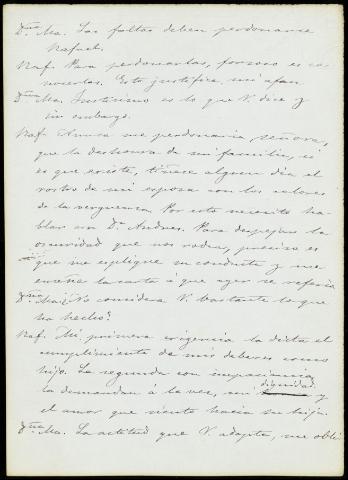 Dña Ma. Las faltas deben perdonarse
Rafael.
Raf. Para perdonarlas, forzoso es co-
nocerlas. Esto justifica mi afan.
Dña Ma. Justísimo es lo que V. dice y
sin embargo.
Raf. Nunca me perdonaria, señora,
que la deshonra de mi familia, si
es que existe, tiñese algun dia el
rostro de mi esposa con los colores
de la verguenza. Por esto necesito ha-
blar con Dn. Andres. Para despejar la
oscuridad que nos rodea, preciso es
que me esplique su conducta y me
enseñe la carta á que ayer se referia
Dña Ma. ¿No considera V. bastante lo que
ha hecho?
Raf. Mi primera exigencia la dicta el
cumplimiento de mis deberes como
hijo. La segunda con impaciencia
la demandan á la vez, mi dignidad y
el amor que siento hacia su hija.
Dña Ma. La actitud que V. adopta, me obli